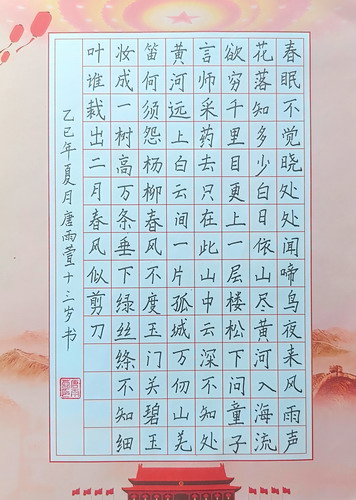 春眠不觉晓处处闻啼鸟夜来风雨声
花落知多少白日依山尽黄河入海流
欲穷千里目更上一层楼松下问童子
言师采药去只在此山中云深不知处
黄河远上白云间一片孤城万仞山羌
笛何须怨杨柳春风不度玉门关碧玉
妆成一树高万条垂下绿丝绦不知细
叶谁裁出二月春风似剪刀
乙巳年夏月唐雨萱十三岁书